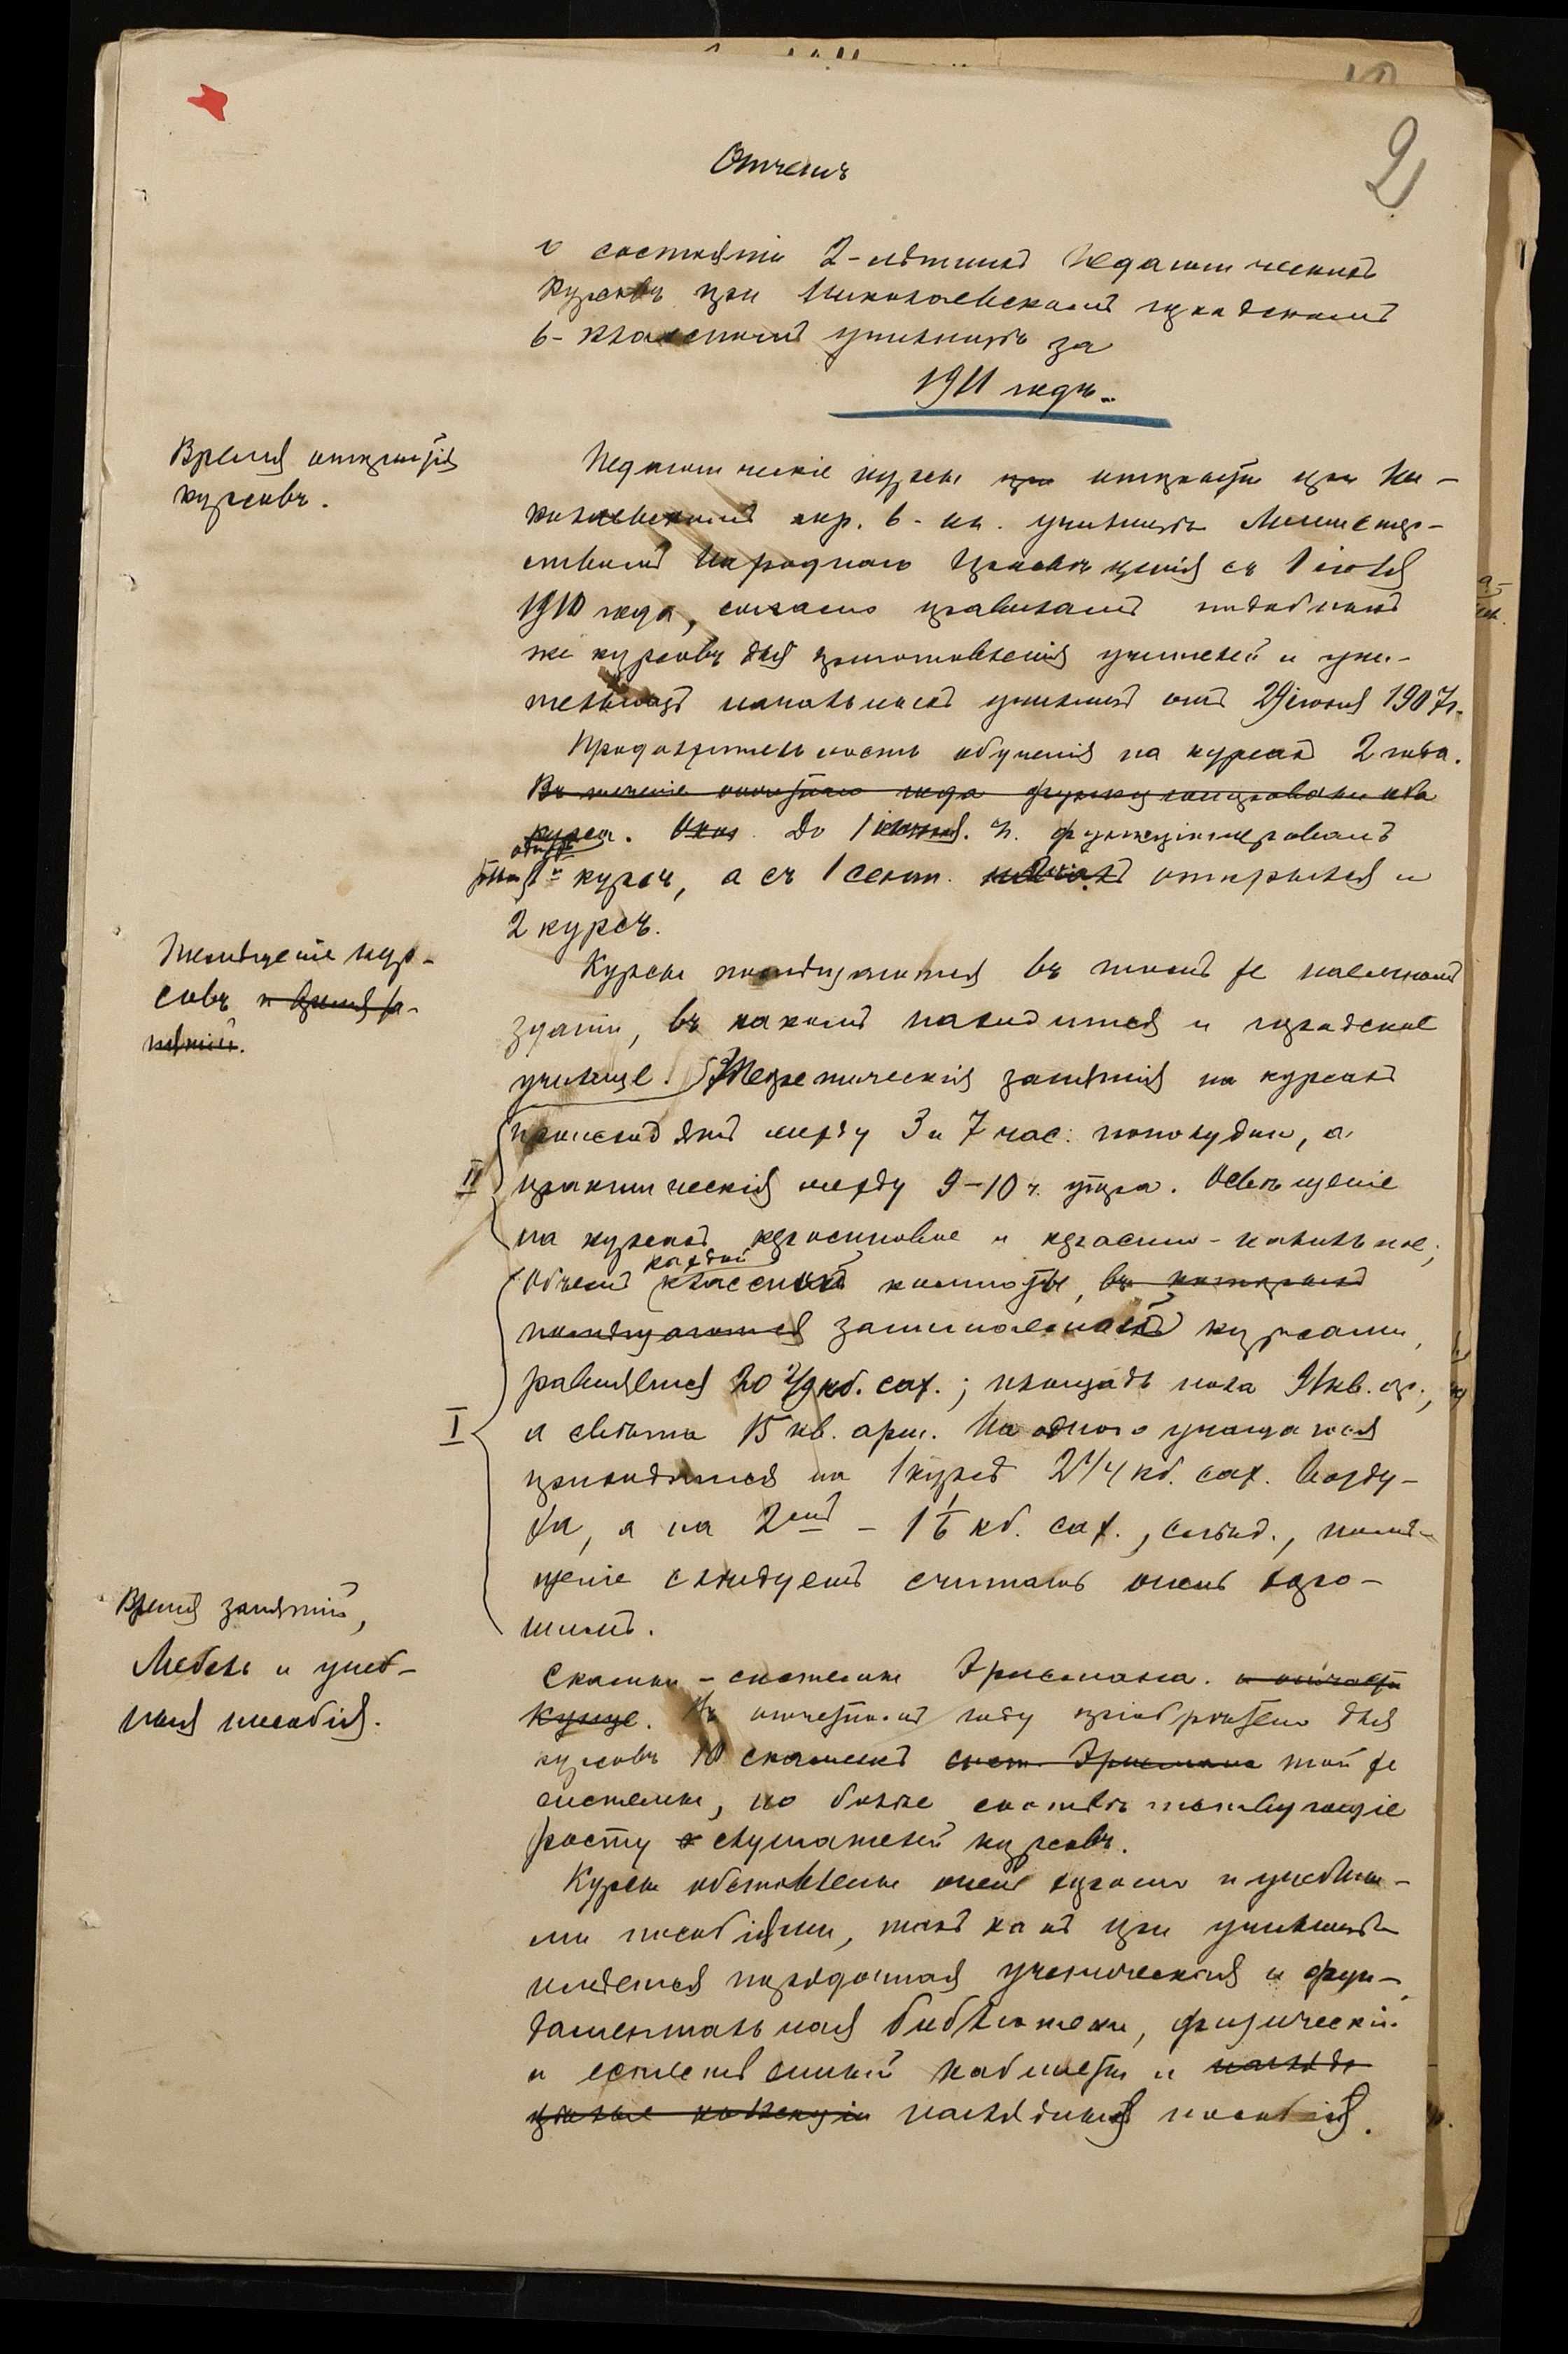 2
Отчетъ
о состояніи 2-лѣтнихъ Педагогическихъ
курсовъ при Николаевскомъ городскомъ
6-классномъ училищѣ за
1911 годъ.
Время открытія
курсовъ.
Педагогическіе курсы при открыты при Ни-
колаевскомъ гор. 6-кл. училищѣ Министер-
ствомъ Народнаго Просвѣщенія съ 1 іюля
1910 года, согласно правиламъ подобныхъ
же курсовъ для приготовленія учителей и учи-
тельницъ начальныхъ училищъ отъ 29 іюня 1907 г.
Продолжительность обученія на курсахъ 2 года.
Въ теченіе отчетнаго года функционировали два
курса. До 1 г. функціонировалъ
одинъ
курсъ, а съ 1 сент. открылся и
2 курсъ.
Помѣщеніе кур-
совъ и время за-
нятій.
Курсы помѣщаются въ томъ же наемномъ
зданіи, въ какомъ находится и городское
училище. Теоретическія занятія на курсахъ
происходятъ между 3 и 7 час. пополудни, а
II
практическія между 9-10 ч. утра. Освѣщеніе
на курсахъ керосиновое и керосино-калильное;
каждой
Объемъ классной комнаты, въ которыхъ
помѣщаются занимаемой курсами,
равняется 20 2/9 кб. саж.; площадь пола 91 кв. ар.,
I
а свѣта 15 кв. арш. На одного учащагося
приходится на 1 курсѣ 2 1/4 кб. саж. возду-
ха, а на 2омъ - 1 1/6 кб. саж., слѣд., помѣ-
щеніе слѣдуетъ считать очень хоро-
шимъ.
Время занятій,
Мебель и учеб-
ныя пособія.
Скамьи - системы Эрисмана. и отчасти
Кунце. Въ отчетномъ году пріобрѣтено для
курсовъ 10 скамеекъ сист. Эрисмана той же
системы, но болѣе соотвѣтствующіе
росту слушателей курсовъ.
Курсы обставлены очень хорошо и учебны-
ми пособіями, такъ какъ при училищѣ
имѣется порядочная ученическая и фун-
даментальная библіотеки, физическій
и естественный кабинеты и
наглядныя пособія.